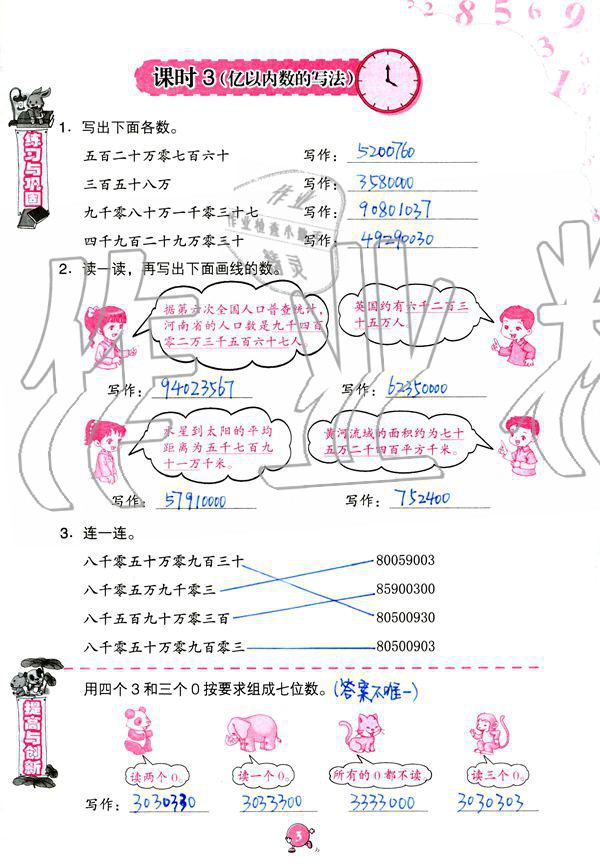 2 2 8 5 6 9
3
1
课时3(亿以内数的写法)
练习与巩固
1. 写出下面各数。
五百二十万零七百六十 写作: 5200760
三百五十八万 写作: 3580000
九千零八十万一千零三十七 写作: 90801037
四千九百二十九万零三十 写作: 49290030
2. 读一读,再写出下面画线的数。
据第六次全国人口普查统计,
河南省的人口数是九千四百
零二万三千五百六十七人。
英国约有六千二百三
十五万人。
写作: 94023567 写作: 62350000
水星到太阳的平均
距离为五千七百九
十一万千米。
黄河流域的面积约为七十
五万二千四百平方千米。
写作: 57910000 写作: 752400
3. 连一连。
八千零五十万零九百三十 80059003
八千零五万九千零三 85900300
八千五百九十万零三百 80500930
八千零五十万零九百零三 80500903
提高与创新
用四个3和三个0按要求组成七位数。(答案不唯一)
读两个0。 读一个0。 所有的0都不读。 读三个0。
写作: 3030330 3033300 3333000 3030303
3
作业
作业检查小助手
精灵
作业精灵